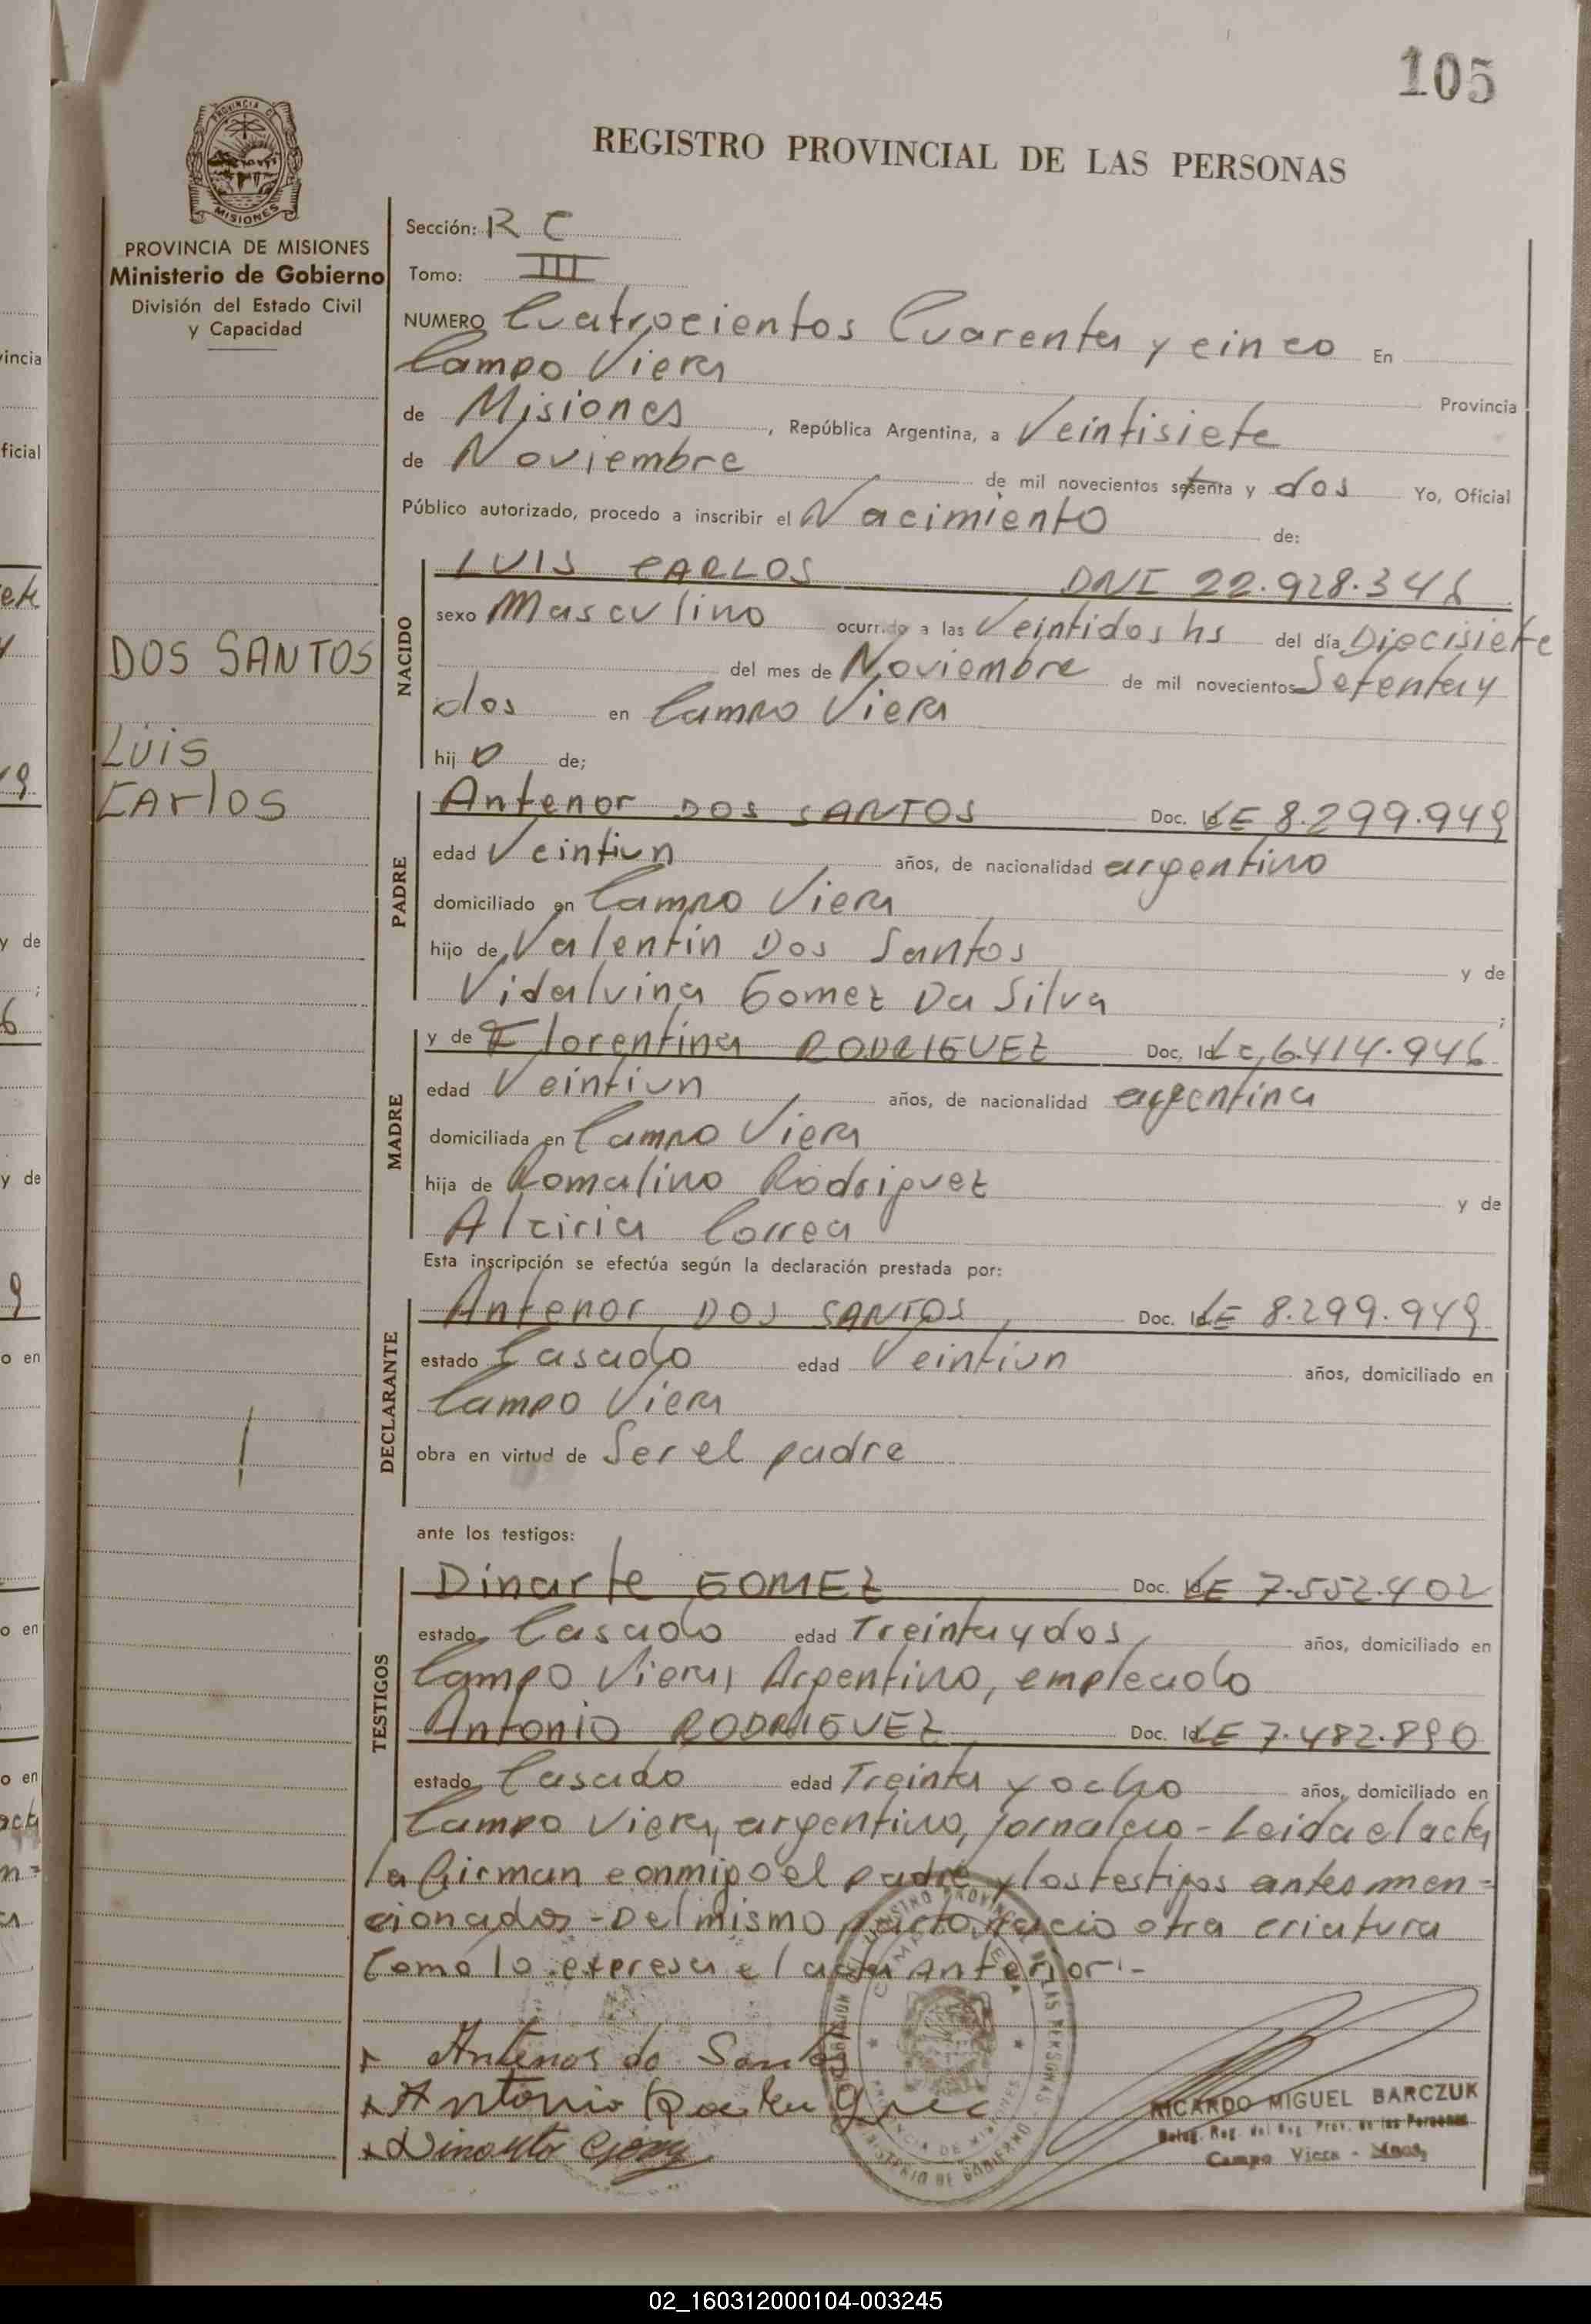 105
REGISTRO PROVINCIAL DE LAS PERSONAS
PROVINCIA DE MISIONES
Ministerio de Gobierno
División del Estado Civil
y Capacidad
Sección: R C
Tomo: III
NUMERO Cuatrocientos Cuarenta y cinco En
Campo Viera Provincia
de Misiones, República Argentina, a Veintisiete
de Noviembre de mil novecientos setenta y dos Yo, Oficial
Público autorizado, procedo a inscribir el Nacimiento de:
DOS SANTOS
Luis
CArlos
NACIDO
LUIS CARLOS DNI 22.928.346
sexo Masculino ocurrido a las Veintidos hs del día Diecisiete
del mes de Noviembre de mil novecientos Setenta y
dos en Campo Viera
hij o de;
PADRE
Antenor DOS SANTOS Doc. LE 8.299.949
edad Veintiun años, de nacionalidad argentino
domiciliado en Campo Viera
hijo de Valentin Dos Santos y de
Vidalvina Gomez Da Silva ;
MADRE
y de Florentina RODRIGUEZ Doc. Id LC 6.414.946
edad Veintiun años, de nacionalidad argentina
domiciliada en Campo Viera
hija de Romalino Rodriguez y de
Alciria Correa
Esta inscripción se efectúa según la declaración prestada por:
DECLARANTE
Antenor DOS SANTOS, Doc. Id LE 8.299.949
estado Casado edad Veintiun años, domiciliado en
Campo Viera
obra en virtud de Ser el padre
ante los testigos:
TESTIGOS
Dinarte GOMEZ Doc. Id LE 7.552.402
estado Casado edad Treinta y dos, años, domiciliado en
Campo Viera, Argentino, empleado
Antonio RODRIGUEZ Doc. Id LE 7.482.890
estado Casado edad Treinta y ocho años, domiciliado en
Campo Viera, argentino, jornalero - Leida el acta
la firman conmigo el padre y los testigos antes men=
cionados - Del mismo parto nacio otra criatura
Como lo expresa el acta Anterior.-
Antenor do Santos
Antonio Rodriguez
RICARDO MIGUEL BARCZUK
Campo Viera - Mnes,
02_160312000104-003245